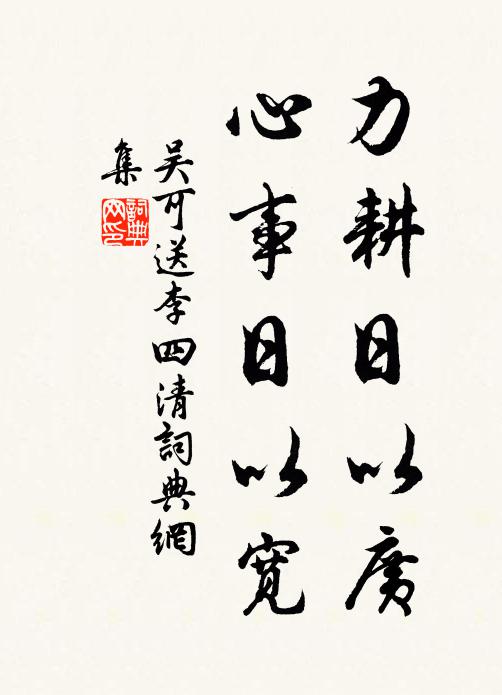 力耕日以廣
心事日以寬
吴可送李四清詞典網
集
詞典
网印